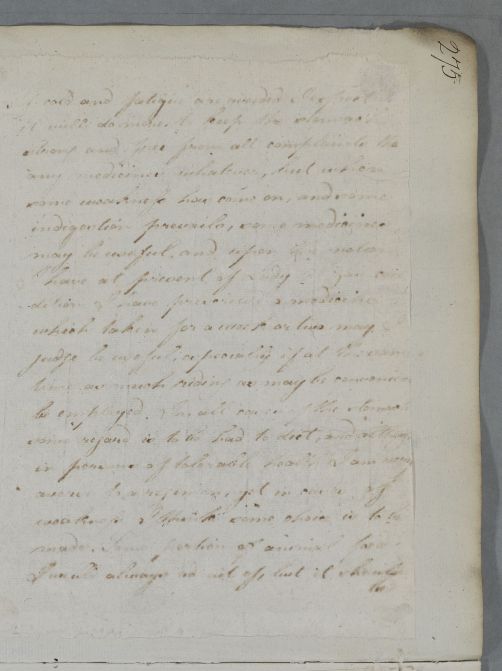 275
if cold and fatigue are avoided I expect
it will do more to keep the stomach
strong and free from all complaints than
any medicines whatever, but when
some weakness has come on, and some
indigestion prevails, some medicines
may be useful, and upon the notion
I have at present of Lady
I have prescribed a medicine
which taken for a week or two may I
judge be useful, especially if at the same
time as much riding as may be convenient
be employed. In all cases of the stomach
some regard is to be had to diet, and altho
in persons of tolerable health I am
averse to a regimen, yet in cases of
weakness I think some choice is to be
made. Some portion of animal food
I would always admit of, but it should
be